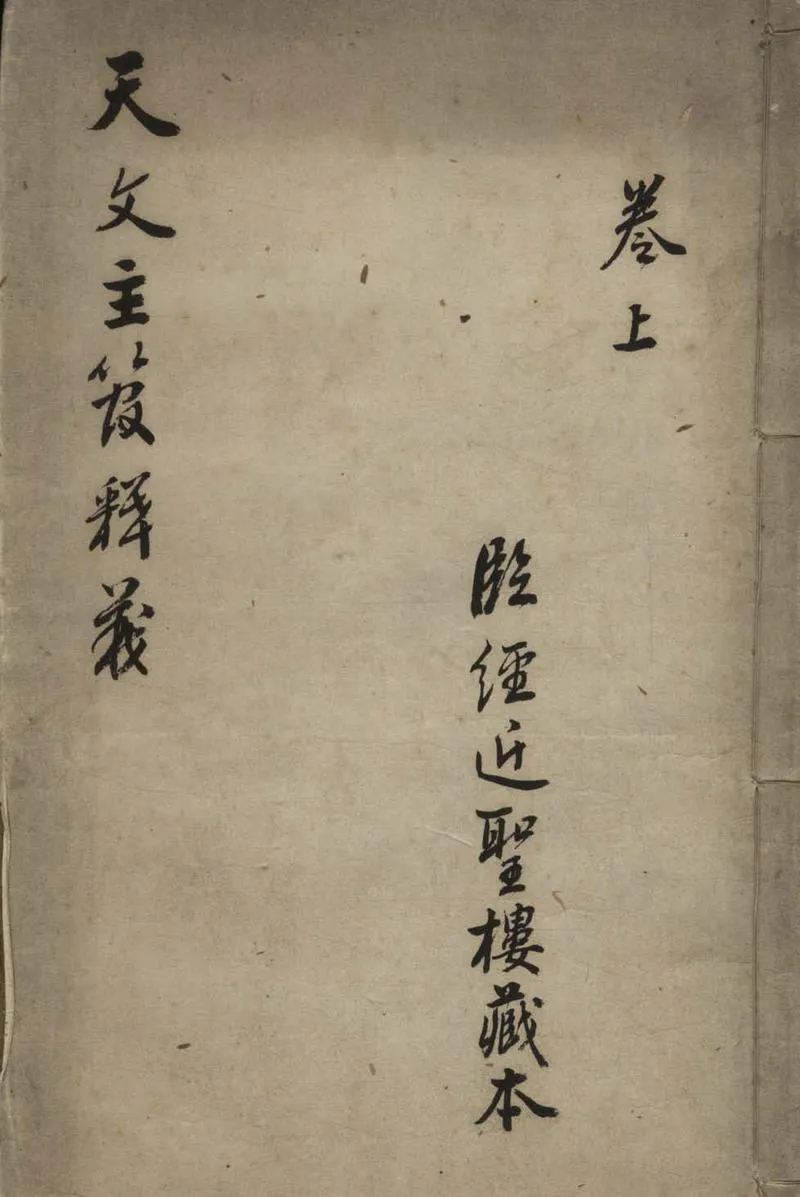 卷上
臨經近聖樓藏本
天文主管釋義